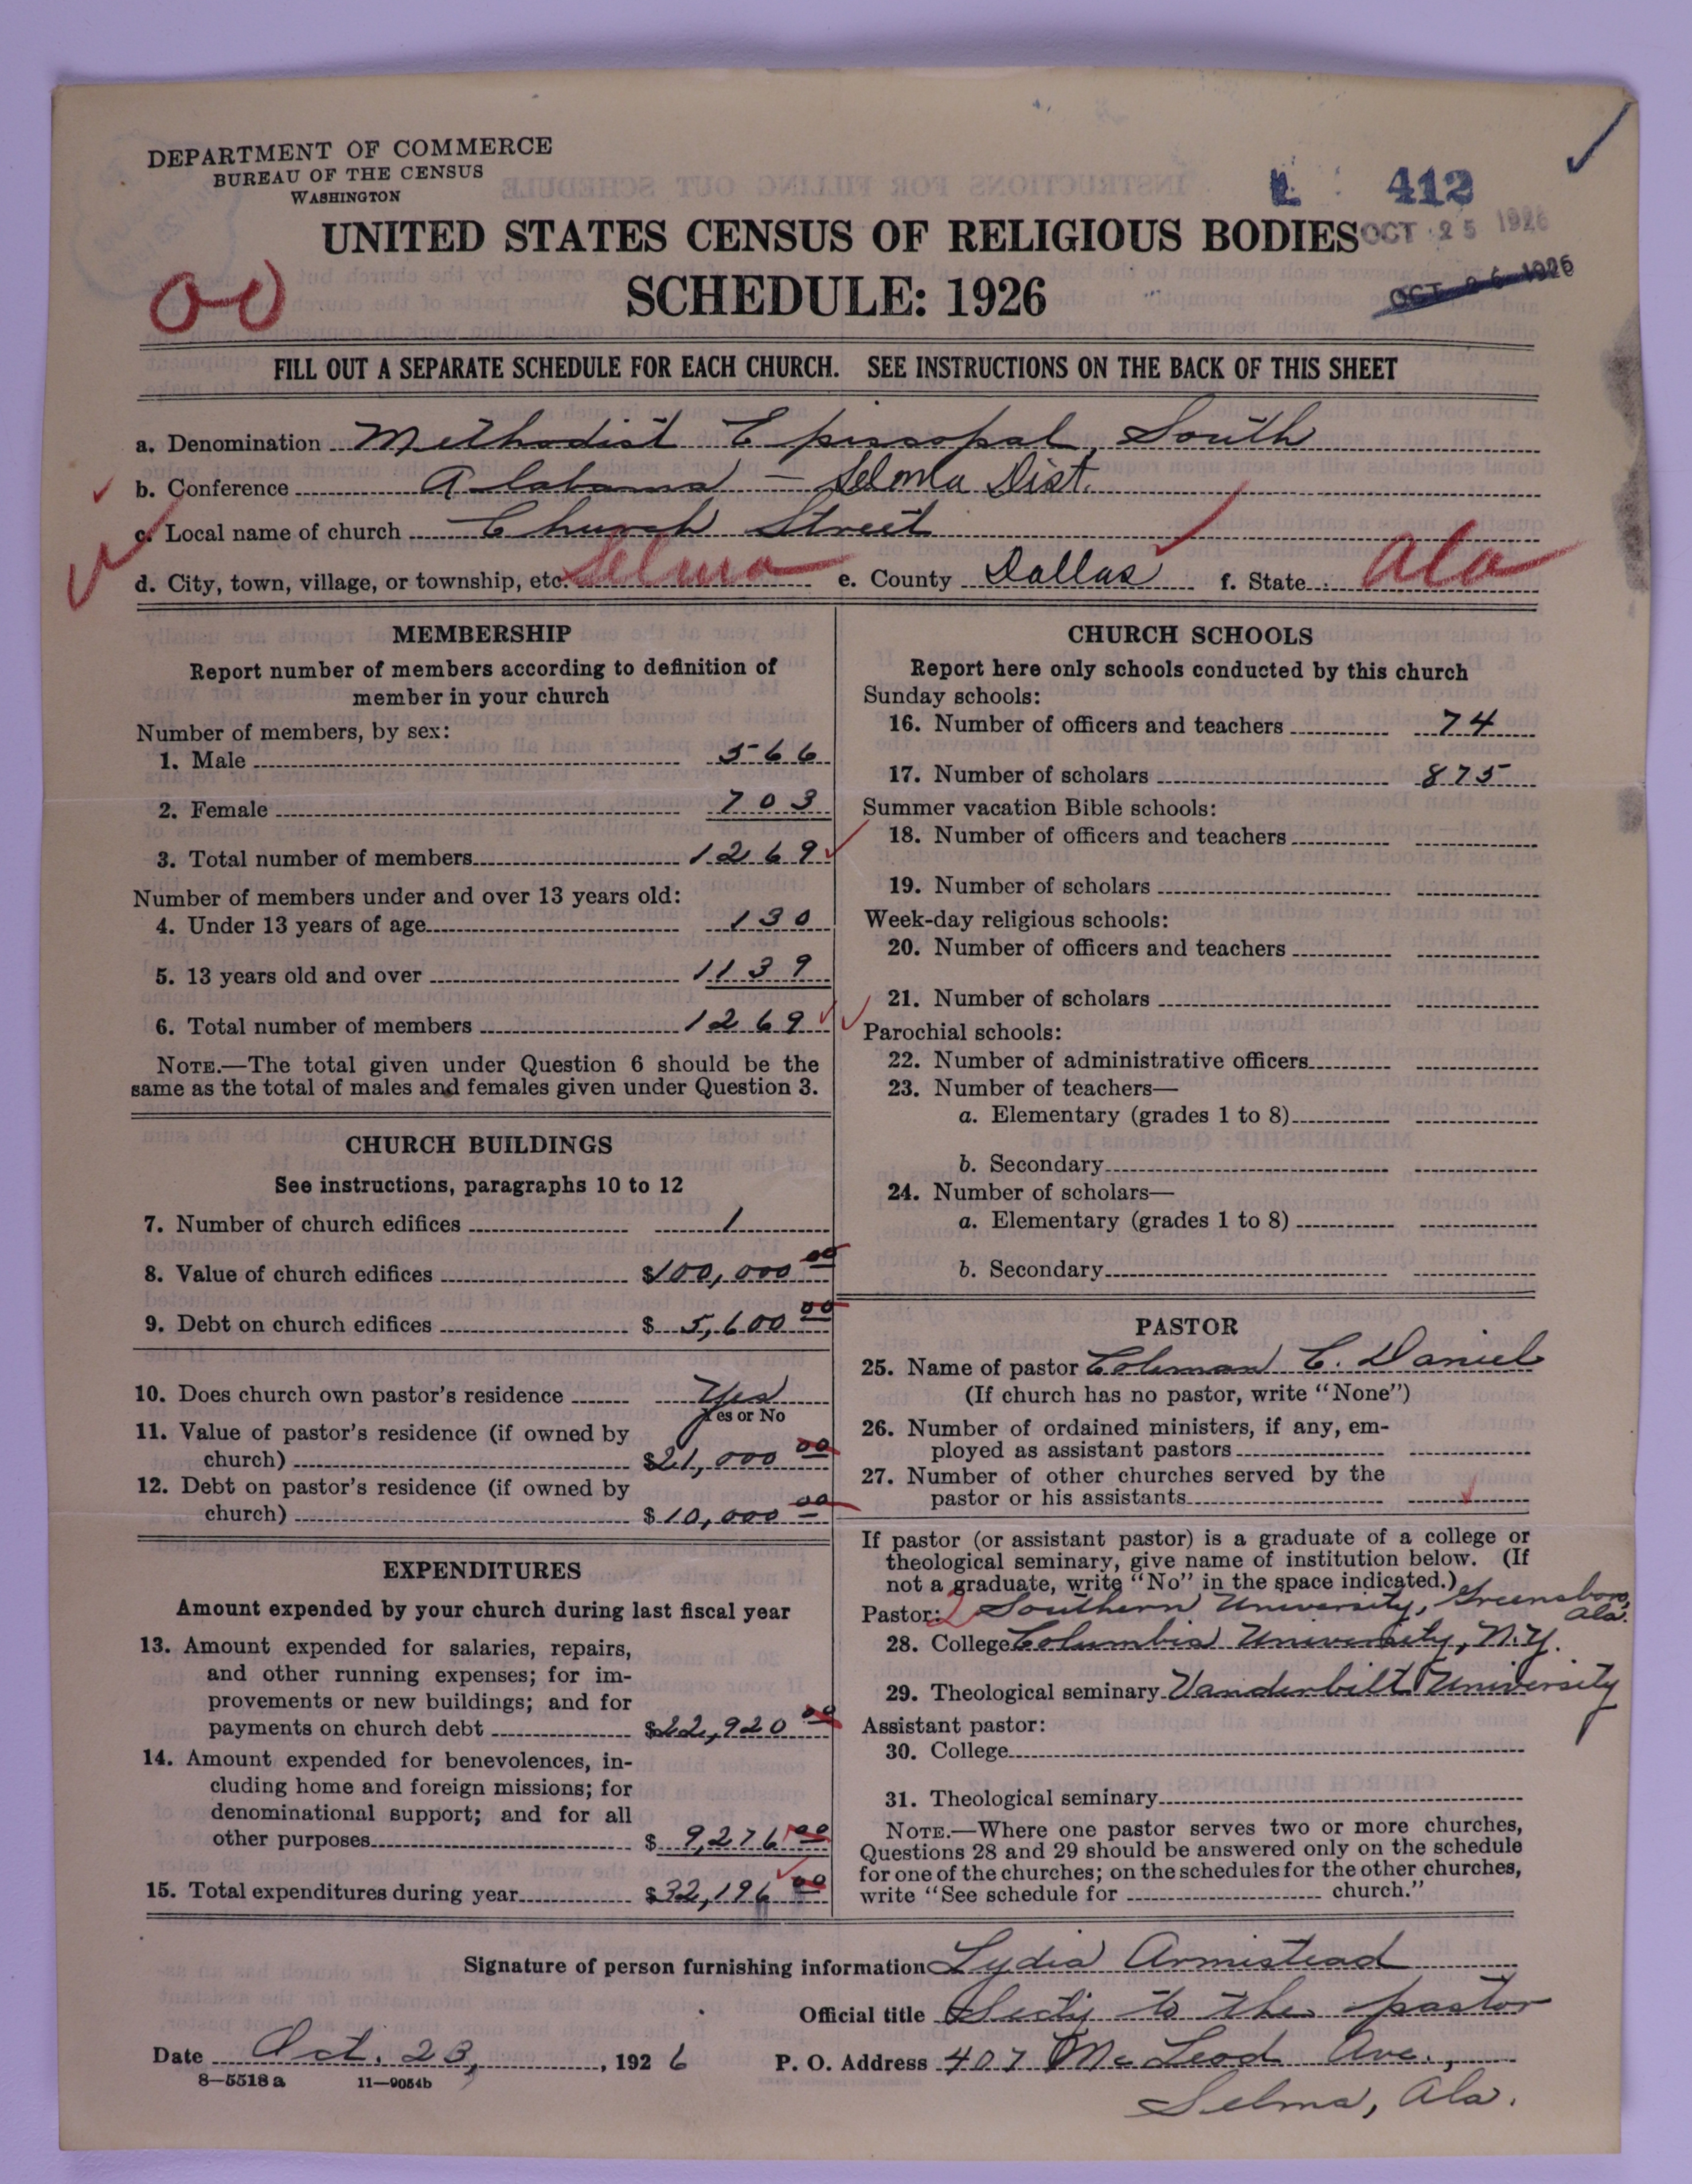 DEPARTMENT OF COMMERCE
BUREAU OF THE CENSUS
WASHINGTON
412
UNITED STATES CENSUS OF RELIGIOUS BODIES
OCT 25 1926
SCHEDULE: 1926
OCT 26 1926
00
FILL OUT A SEPARATE SCHEDULE FOR EACH CHURCH. SEE INSTRUCTIONS ON THE BACK OF THIS SHEET
a. Denomination Methodist Episcopal, South
b. Conference Alabama – Selma Dist.
c. Local name of church Church Street
d. City, town, village, or township, etc. Selma e. County Dallas f. State Ala
MEMBERSHIP
Report number of members according to definition of
member in your church
Number of members, by sex:
1. Male 566
2. Female 703
3. Total number of members 1269
Number of members under and over 13 years old:
4. Under 13 years of age 130
5. 13 years old and over 1139
6. Total number of members 1269
NOTE.—The total given under Question 6 should be the
same as the total of males and females given under Question 3.
CHURCH BUILDINGS
See instructions, paragraphs 10 to 12
7. Number of church edifices 1
8. Value of church edifices $100,000 00
9. Debt on church edifices $ 5,600 00
10. Does church own pastor's residence Yes
Yes or No
11. Value of pastor's residence (if owned by
church) $21,000 00
12. Debt on pastor's residence (if owned by
church) $10,000 00
EXPENDITURES
Amount expended by your church during last fiscal year
13. Amount expended for salaries, repairs,
and other running expenses; for im-
provements or new buildings; and for
payments on church debt $22,920 00
14. Amount expended for benevolences, in-
cluding home and foreign missions; for
denominational support; and for all
other purposes $ 9,276 00
15. Total expenditures during year $32,196 00
CHURCH SCHOOLS
Report here only schools conducted by this church
Sunday schools:
16. Number of officers and teachers 74
17. Number of scholars 875
Summer vacation Bible schools:
18. Number of officers and teachers
19. Number of scholars
Week-day religious schools:
20. Number of officers and teachers
21. Number of scholars
Parochial schools:
22. Number of administrative officers
23. Number of teachers—
a. Elementary (grades 1 to 8)
b. Secondary
24. Number of scholars—
a. Elementary (grades 1 to 8)
b. Secondary
PASTOR
25. Name of pastor Coleman C. Daniel
(If church has no pastor, write "None")
26. Number of ordained ministers, if any, em-
ployed as assistant pastors
27. Number of other churches served by the
pastor or his assistants
If pastor (or assistant pastor) is a graduate of a college or
theological seminary, give name of institution below. (If
not a graduate, write "No" in the space indicated.)
Pastor: 2 Southern University, Greensboro, Ala.
28. College Columbia University, N.Y.
29. Theological seminary Vanderbilt University
Assistant pastor:
30. College
31. Theological seminary
NOTE.—Where one pastor serves two or more churches,
Questions 28 and 29 should be answered only on the schedule
for one of the churches; on the schedules for the other churches,
write "See schedule for church."
Signature of person furnishing information Lydia Armistead
Official title Secty to the pastor
Date Oct. 23, 1926 P. O. Address 407 McLeod Ave.,
8—5518 a 11—9054b
Selma, Ala.